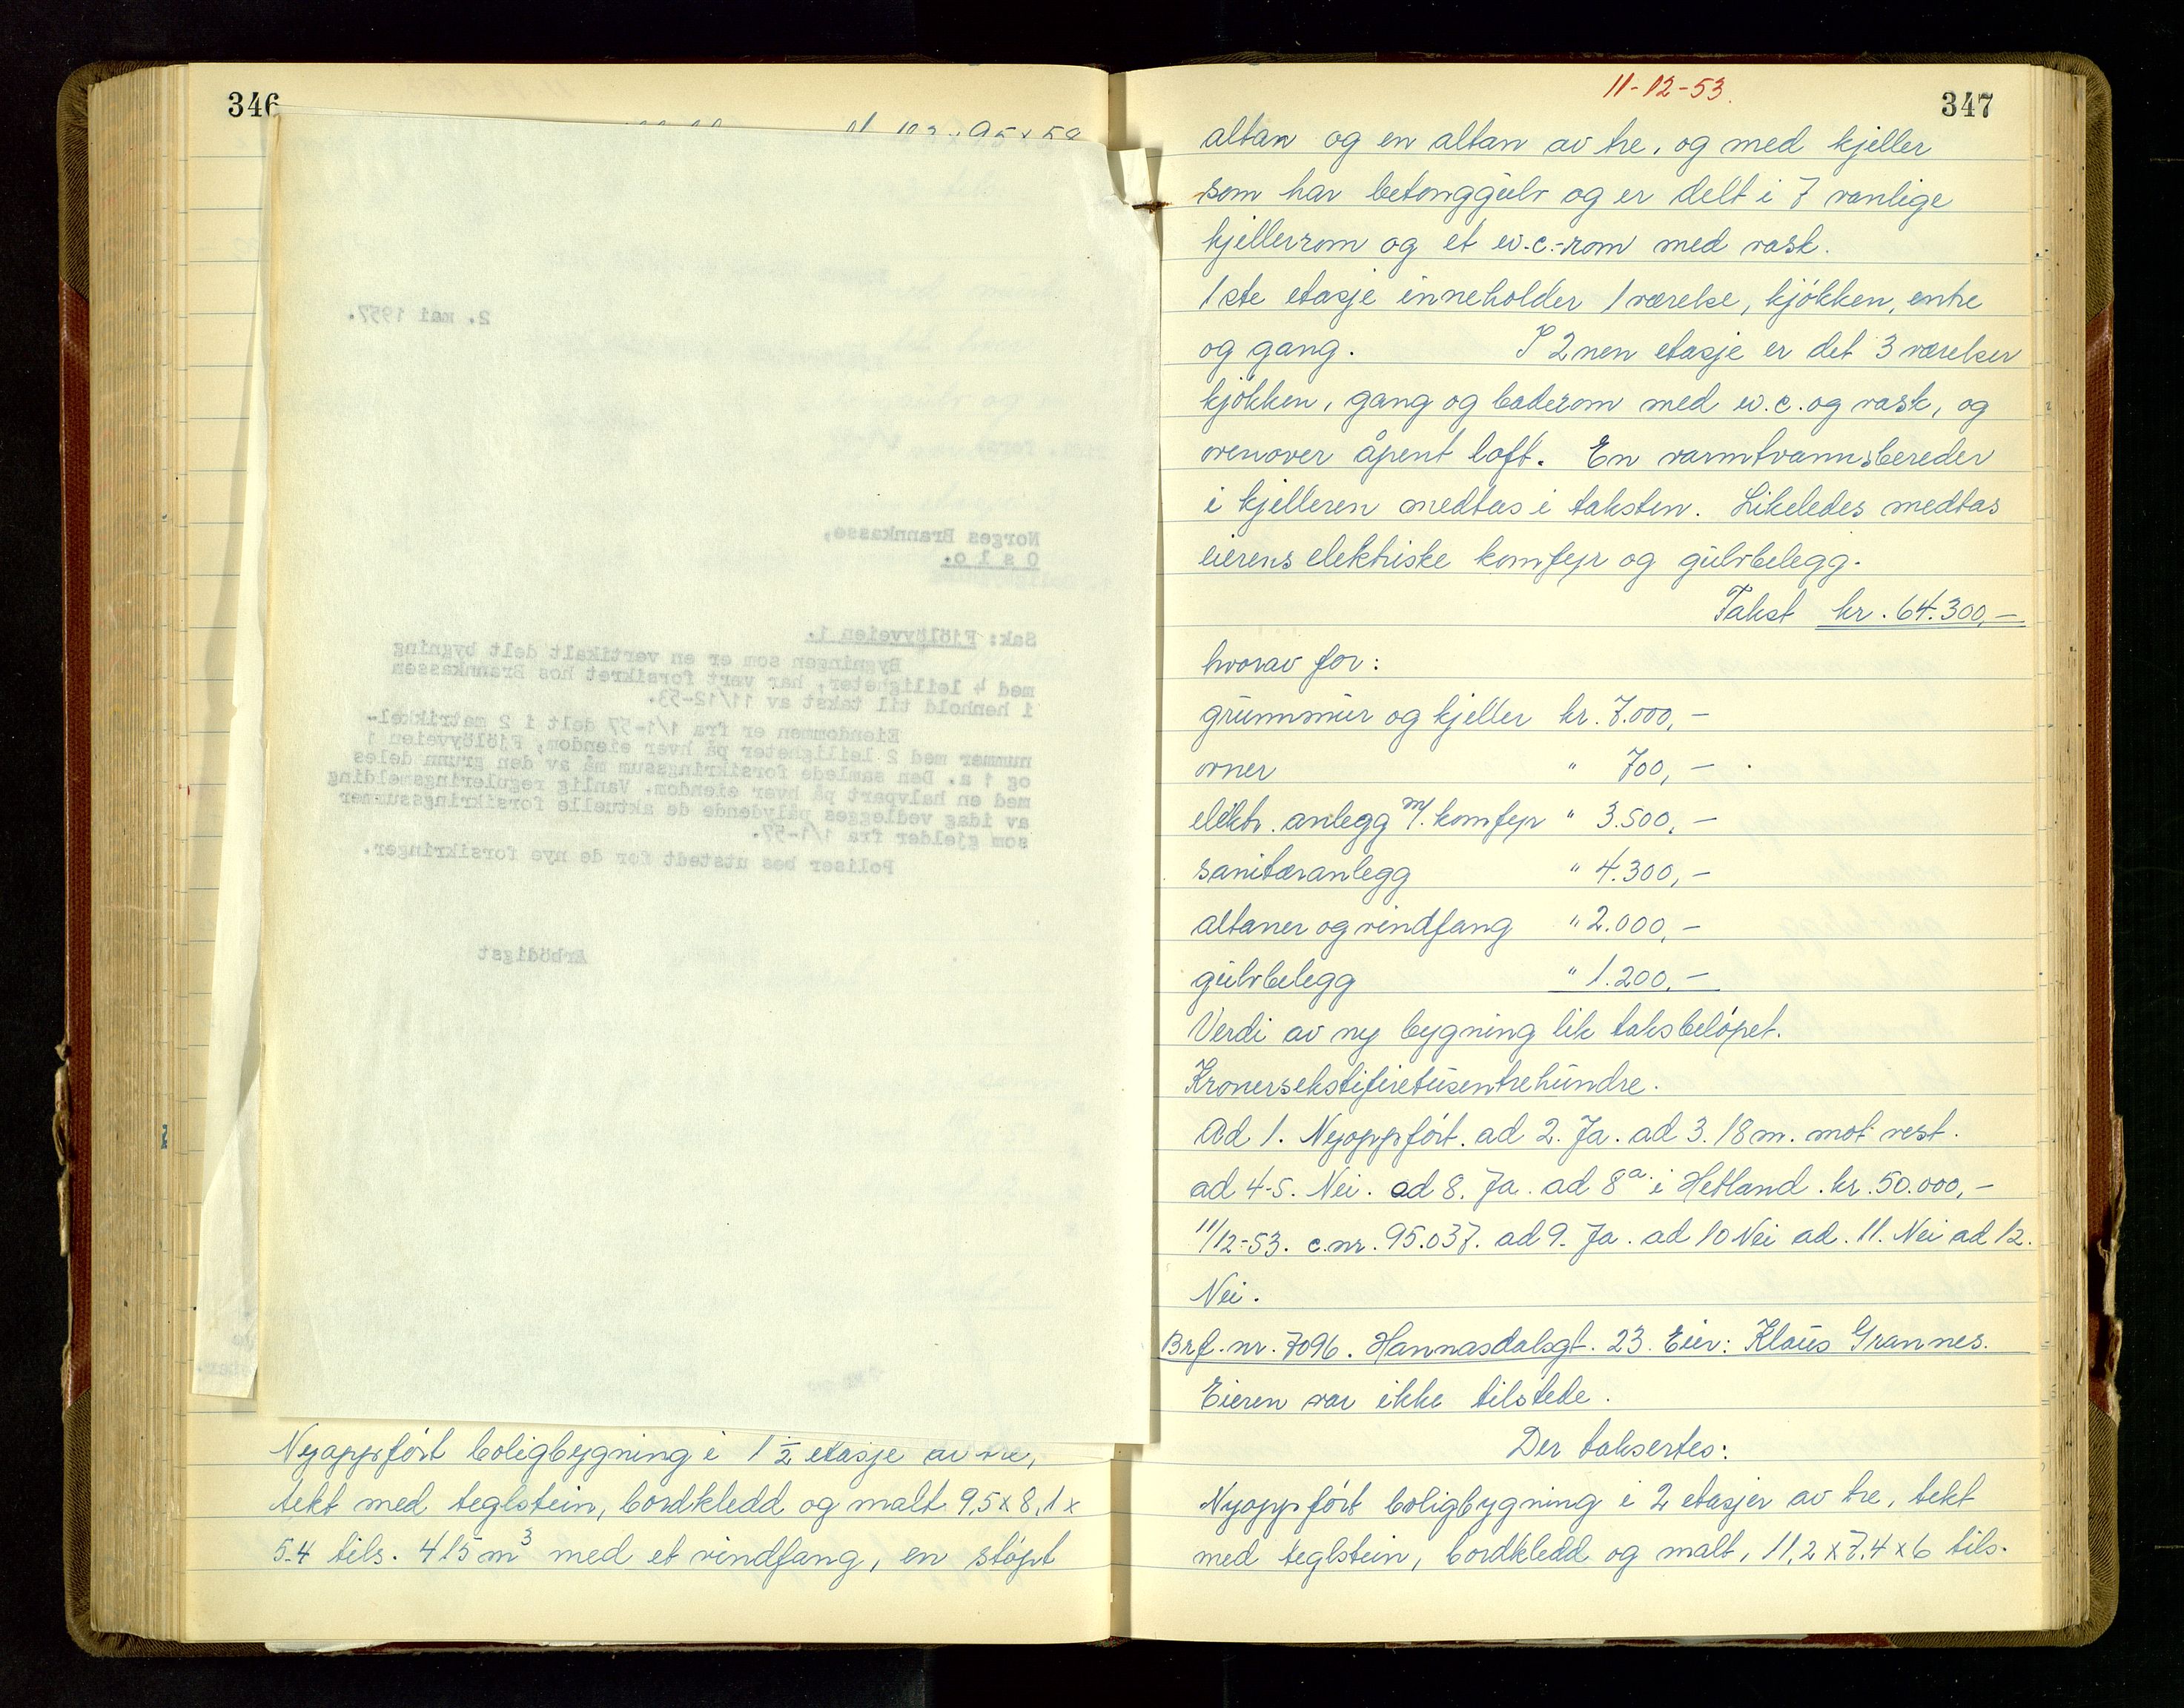 346
2. mai 1957.
Norges Brannkasse,
O s l o.
Sak: Fjölöyveien 1.
Bygningen som er en vertikalt delt bygning
med 4 leiligheter, har vært forsikret hos Brannkassen
i henhold til takst av 11/12-53.
Eiendommen er fra 1/1-57 delt i 2 matrikkel-
nummer med 2 leiligheter på hver eiendom, Fjölöyveien 1
og 1 a. Den samlede forsikringssum må av den grunn deles
med en halvpart på hver eiendom. Vanlig reguleringsmelding
av idag vedlegges pålydende de aktuelle forsikringssummer
som gjelder fra 1/1-57.
Poliser bes utstedt for de nye forsikringer.
Ærbödigst
Nyoppfört boligbygning i 1 1/2 etasje av tre,
tekt med teglstein, bordkledd og malt 9,5 x 8,1 x
5.4 tils. 415 m³ med et vindfang, en stöpt
11-12-53.
347
altan og en altan av tre, og med kjeller
som har betonggulv og er delt i 7 vanlige
kjellerrom og et w.c.-rom med vask.
1ste etasje inneholder 1 værelse, kjökken, entre
og gang. I 2nen etasje er det 3 værelser
kjökken, gang og baderom med w.c. og vask, og
ovenover åpent loft. En varmtvannsbereder
i kjelleren medtas i taksten. Likeledes medtas
eierens elektriske komfyr og gulvbelegg.
Takst kr. 64.300,-
hvorav for:
grunnmur og kjeller kr. 7.000,-
ovner " 700,-
elektr. anlegg m/. komfyr " 3.500,-
sanitæranlegg " 4.300,-
altaner og vindfang " 2.000,-
gulvbelegg " 1.200,-
Verdi av ny bygning lik taksbelöpet.
Kronersekstifiretusentrehundre.
Ad 1. Nyoppfört. ad 2. Ja. ad 3. 18 m. mot vest.
ad 4-5. Nei. ad 8. Ja. ad 8a. i Hetland. kr. 50.000,-
11/12-53. c.nr. 95.037. ad 9. Ja. ad 10 Nei ad. 11. Nei ad 12.
Nei.
Brf. nr. 7096. Hannasdalsgt. 23. Eier: Klaus Grannes.
Eieren var ikke tilstede.
Der taksertes:
Nyoppfört boligbygning i 2 etasjer av tre, tekt
med teglstein, bordkledd og malt, 11,2 x 7.4 x 6 tils.